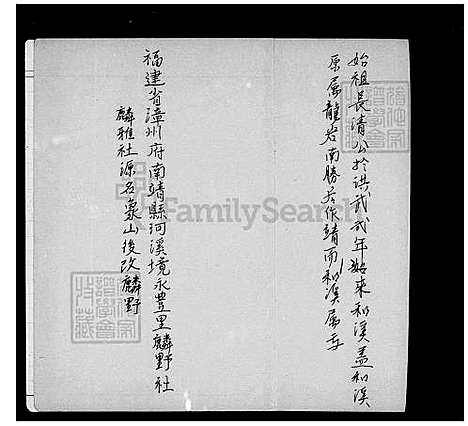 始祖長清公於洪武弍年始來和溪盖和溪
原属龍岩南勝若作靖而和溪属
福建省漳州府南靖縣河溪境永豊里麟野社
麟雅社源名象山後改麟野
FamilySearch